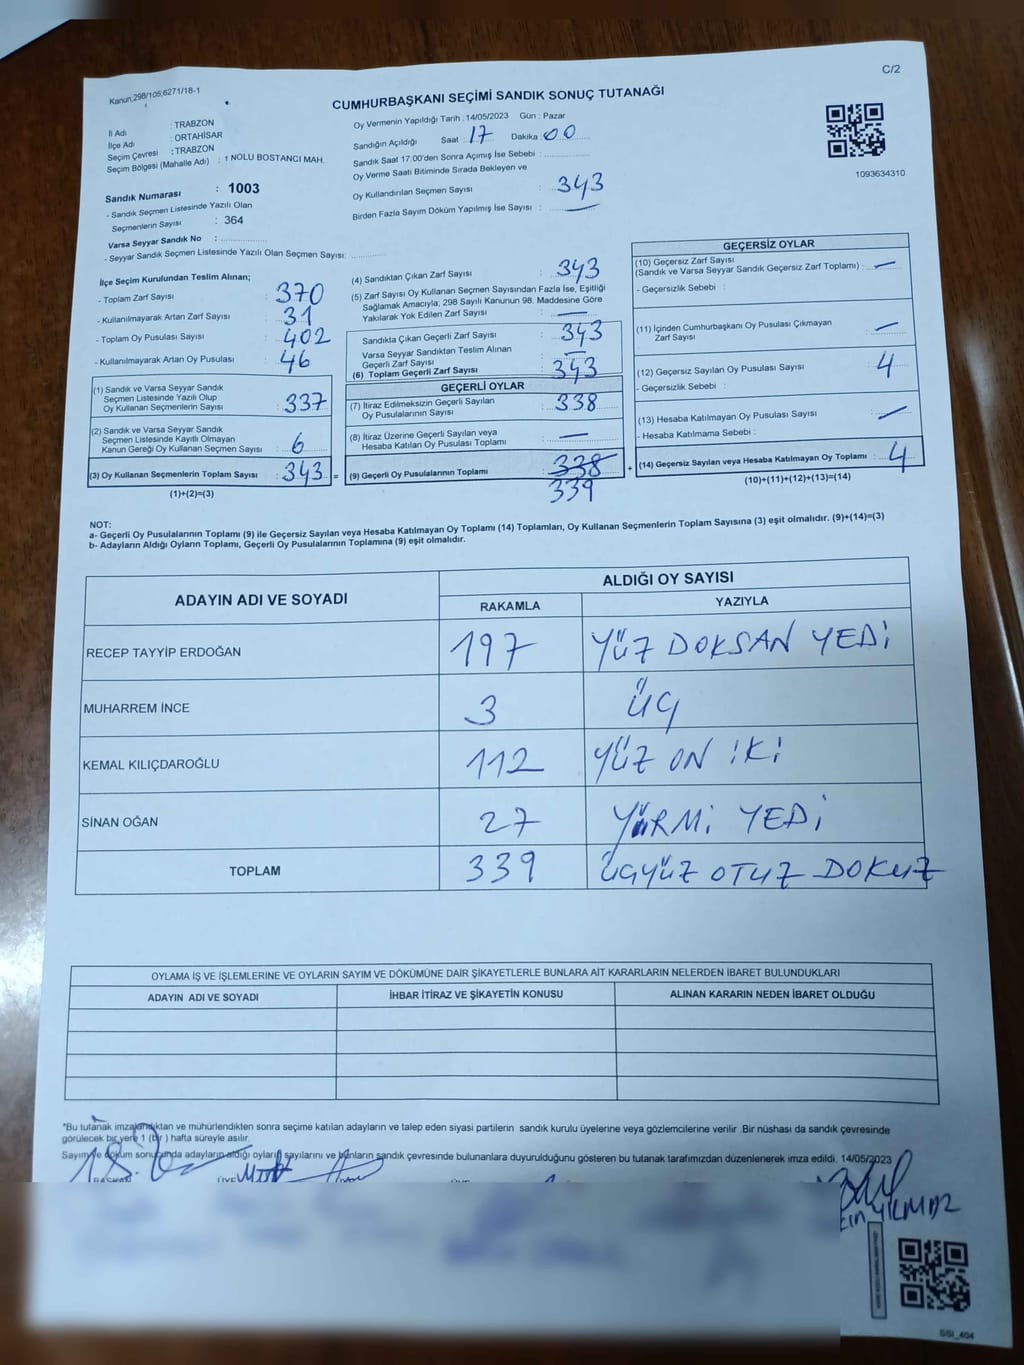 C/2
Kanun;298/105;6271/18-1
CUMHURBAŞKANI SEÇİMİ SANDIK SONUÇ TUTANAĞI
İl Adı : TRABZON
İlçe Adı : ORTAHİSAR
Seçim Çevresi : TRABZON
Seçim Bölgesi (Mahalle Adı) : 1 NOLU BOSTANCI MAH.
Sandık Numarası : 1003
- Sandık Seçmen Listesinde Yazılı Olan
Seçmenlerin Sayısı : 364
Varsa Seyyar Sandık No :
- Seyyar Sandık Seçmen Listesinde Yazılı Olan Seçmen Sayısı:
Oy Vermenin Yapıldığı Tarih :14/05/2023 Gün : Pazar
Sandığın Açıldığı Saat : 17 Dakika : 00
Sandık Saat 17.00'den Sonra Açımış İse Sebebi :
Oy Verme Saati Bitiminde Sırada Bekleyen ve
Oy Kullandırılan Seçmen Sayısı : 343
Birden Fazla Sayım Döküm Yapılmış İse Sayısı : —
1093634310
İlçe Seçim Kurulundan Teslim Alınan;
- Toplam Zarf Sayısı : 370
- Kullanılmayarak Artan Zarf Sayısı : 31
- Toplam Oy Pusulası Sayısı : 402
- Kullanılmayarak Artan Oy Pusulası : 46
(1) Sandık ve Varsa Seyyar Sandık
Seçmen Listesinde Yazılı Olup
Oy Kullanan Seçmenlerin Sayısı : 337
(2) Sandık ve Varsa Seyyar Sandık
Seçmen Listesinde Kayıtlı Olmayan
Kanun Gereği Oy Kullanan Seçmen Sayısı : 6
(3) Oy Kullanan Seçmenlerin Toplam Sayısı : 343 =
(1)+(2)=(3)
(4) Sandıktan Çıkan Zarf Sayısı : 343
(5) Zarf Sayısı Oy Kullanan Seçmen Sayısından Fazla İse, Eşitliği
Sağlamak Amacıyla; 298 Sayılı Kanunun 98. Maddesine Göre
Yakılarak Yok Edilen Zarf Sayısı : —
Sandıkta Çıkan Geçerli Zarf Sayısı : 343
Varsa Seyyar Sandıktan Teslim Alınan
Geçerli Zarf Sayısı : —
(6) Toplam Geçerli Zarf Sayısı : 343
GEÇERLİ OYLAR
(7) İtiraz Edilmeksizin Geçerli Sayılan
Oy Pusulalarının Sayısı : 338
(8) İtiraz Üzerine Geçerli Sayılan veya
Hesaba Katılan Oy Pusulası Toplamı : —
(9) Geçerli Oy Pusulalarının Toplamı : 338 +
339
GEÇERSİZ OYLAR
(10) Geçersiz Zarf Sayısı
(Sandık ve Varsa Seyyar Sandık Geçersiz Zarf Toplamı) : —
- Geçersizlik Sebebi :
(11) İçinden Cumhurbaşkanı Oy Pusulası Çıkmayan
Zarf Sayısı : —
(12) Geçersiz Sayılan Oy Pusulası Sayısı : 4
- Geçersizlik Sebebi :
(13) Hesaba Katılmayan Oy Pusulası Sayısı : —
- Hesaba Katılmama Sebebi :
(14) Geçersiz Sayılan veya Hesaba Katılmayan Oy Toplamı : 4
(10)+(11)+(12)+(13)=(14)
NOT:
a- Geçerli Oy Pusulalarının Toplamı (9) ile Geçersiz Sayılan veya Hesaba Katılmayan Oy Toplamı (14) Toplamları, Oy Kullanan Seçmenlerin Toplam Sayısına (3) eşit olmalıdır. (9)+(14)=(3)
b- Adayların Aldığı Oyların Toplamı, Geçerli Oy Pusulalarının Toplamına (9) eşit olmalıdır.
ADAYIN ADI VE SOYADI ALDIĞI OY SAYISI
RAKAMLA YAZIYLA
RECEP TAYYİP ERDOĞAN 197 YÜZ DOKSAN YEDİ
MUHARREM İNCE 3 ÜÇ
KEMAL KILIÇDAROĞLU 112 YÜZ ON İKİ
SİNAN OĞAN 27 YİRMİ YEDİ
TOPLAM 339 ÜÇYÜZ OTUZ DOKUZ
OYLAMA İŞ VE İŞLEMLERİNE VE OYLARIN SAYIM VE DÖKÜMÜNE DAİR ŞİKAYETLERLE BUNLARA AİT KARARLARIN NELERDEN İBARET BULUNDUKLARI
ADAYIN ADI VE SOYADI İHBAR İTİRAZ VE ŞİKAYETİN KONUSU ALINAN KARARIN NEDEN İBARET OLDUĞU
*Bu tutanak imzalandıktan ve mühürlendikten sonra seçime katılan adayların ve talep eden siyasi partilerin sandık kurulu üyelerine veya gözlemcilerine verilir .Bir nüshası da sandık çevresinde
görülecek bir yere 1 (bir ) hafta süreyle asılır.
Sayım ve döküm sonucunda adayların aldığı oyların sayılarını ve bunların sandık çevresinde bulunanlara duyurulduğunu gösteren bu tutanak tarafımızdan düzenlenerek imza edildi. 14/05/2023
BAŞKAN
YILMAZ
SSI_404